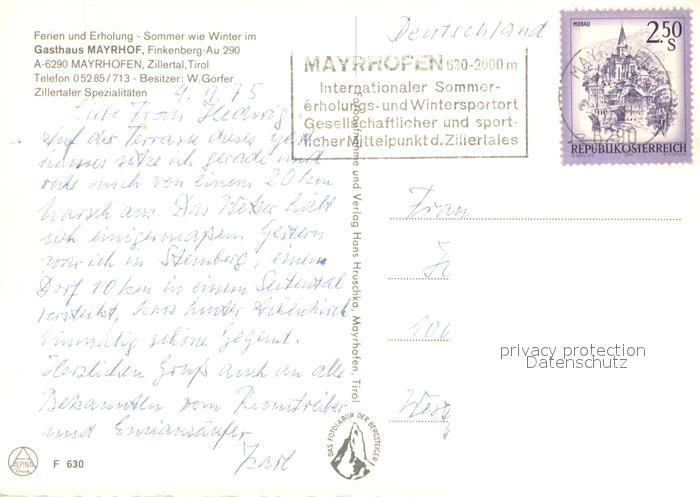 Ferien und Erholung - Sommer wie Winter im
Gasthaus MAYRHOF, Finkenberg-Au 290
A-6290 MAYRHOFEN, Zillertal, Tirol
Telefon 05285/713 - Besitzer: W. Gorfer
Zillertaler Spezialitäten
4.9.75
Liebe Frau Hedwig!
Auf der Terrasse dieses Gast-
hauses sitze ich gerade und
ruhe mich von einem 20 km
marsch aus. Das Wetter hält
sich einigermaßen. Gestern
war ich in Steinberg, einem
Dorf 10 km in einem Seitental
versteckt, kurz hinter Achenkirch
Einmalig schöne Gegend.
Herzlichen Gruß auch an alle
Bekannten vom
und Enziansäufer
Karl
F 630
ALPINA
Deutschland
MAYRHOFEN 630-2000 m
Internationaler Sommer-
erholungs- und Wintersportort
Gesellschaftlicher und sport-
licher Mittelpunkt d. Zillertales
MURAU
2.50
S
6290
REPUBLIK ÖSTERREICH
Farbaufnahme und Verlag Hans Hruschka, Mayrhofen, Tirol
DAS FOTOLABOR DER BERGSTEIGER
Frau
100
West
privacy protection
Datenschutz